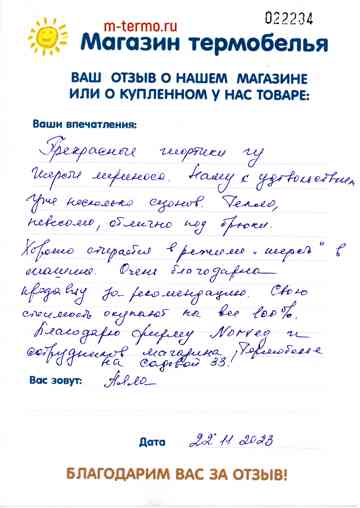 m-termo.ru
022234
Магазин термобелья
ВАШ ОТЗЫВ О НАШЕМ МАГАЗИНЕ
ИЛИ О КУПЛЕННОМ У НАС ТОВАРЕ:
Ваши впечатления:
Прекрасные шортики из
шерсти мериноса. Ношу с удовольствием
уже несколько сезонов. Тепло,
невесомо, отлично под брюки.
Хорошо стирается в режиме „шерсть" в
машине. Очень благодарна
продавцу за рекомендацию. Свою
стоимость окупают на все 100%.
Благодарю фирму Norveg и
сотрудников магазина „Термобелье
на Садовой 33".
Вас зовут: Алла
Дата 22 11 2023
БЛАГОДАРИМ ВАС ЗА ОТЗЫВ!